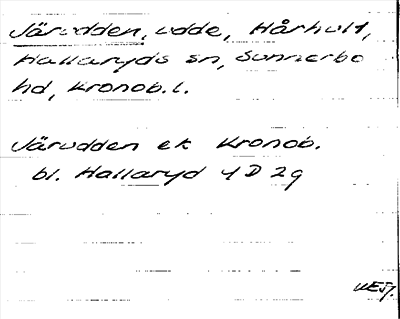 Järudden, udde, Hårhult,
Hallaryds sn, Sunnerbo
hd, Kronob. l.
Järudden ek Kronob.
bl. Hallaryd 4D2g